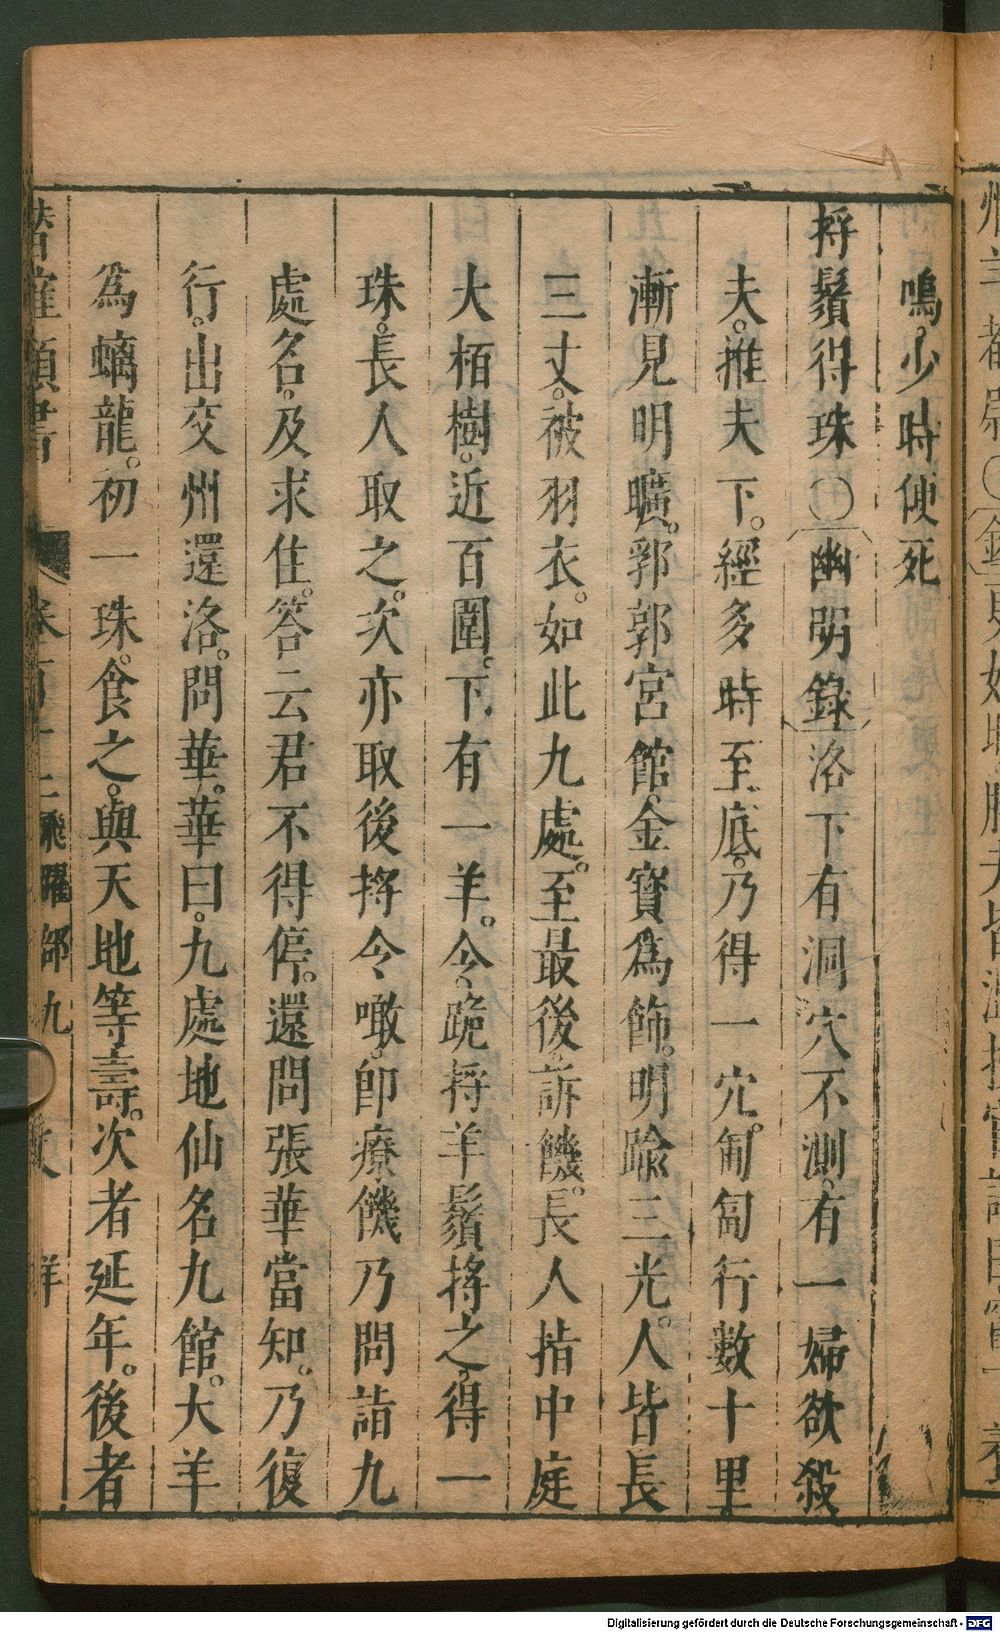 鳴。少時便死
捋鬚得珠〇幽明錄洛下有洞穴不測。有一婦欲殺
夫。推夫下。經多時至底。乃得一穴。匍匐行數十里
漸見明曠。郛郭宮館。金寶為飾。明踰三光。人皆長
三丈。被羽衣。如此九處。至最後。訴饑。長人指中庭
大栢樹。近百圍。下有一羊。令跪捋羊鬚。捋之得一
珠。長人取之。次亦取後捋令噉。即療饑乃問詣九
處名。及求住。答云君不得停。還問張華當知。乃復
行。出交州還洛。問華。華曰。九處地仙名九館。大羊
為螭龍。初一珠。食之。與天地等壽。次者延年。後者
類書 卷百十二飛躍部九 羊
Digitalisierung gefördert durch die Deutsche Forschungsgemeinschaft - DFG